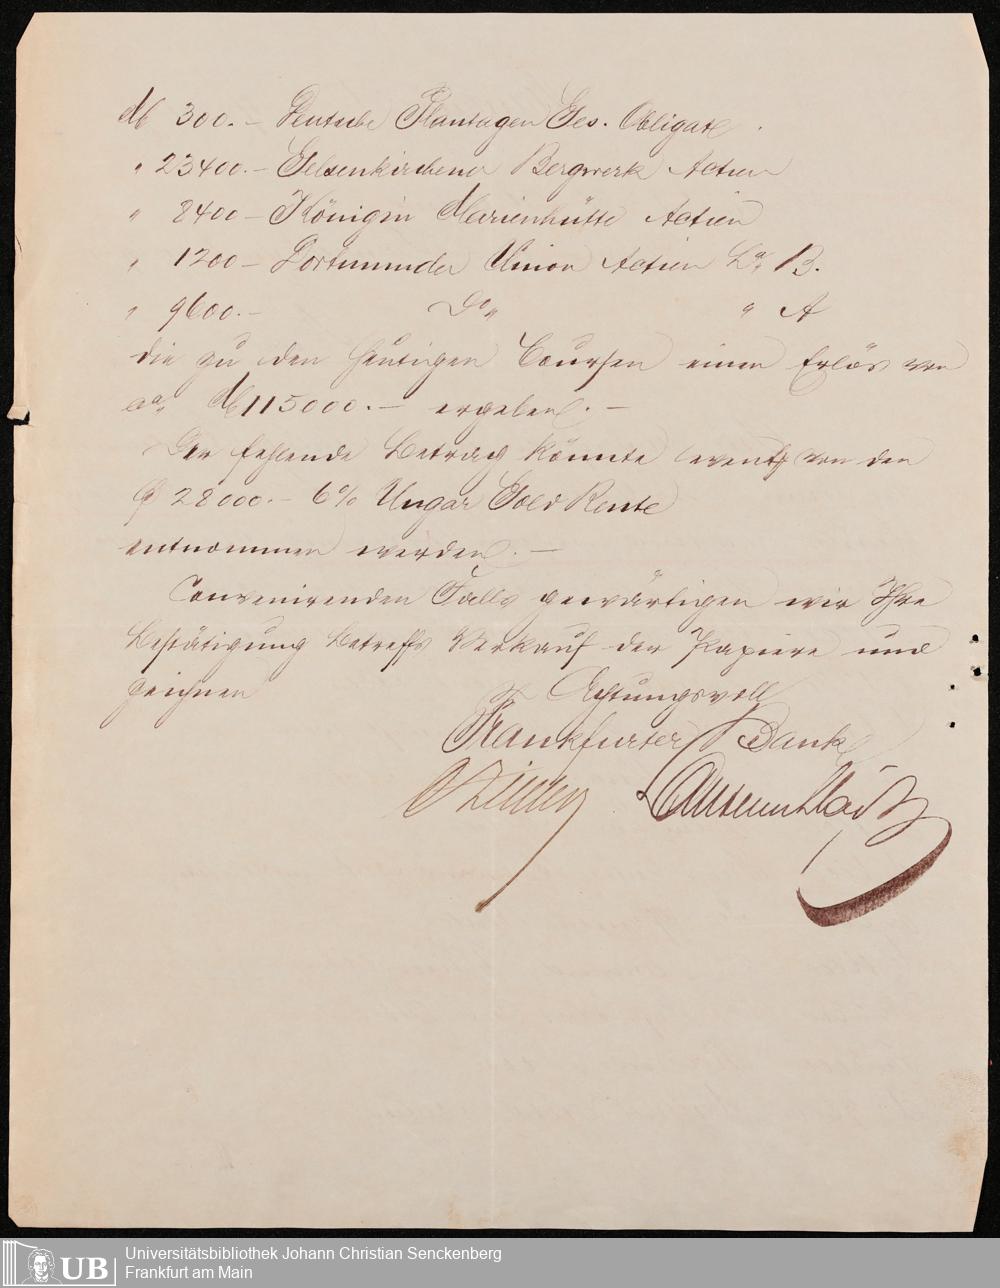 M 300.– Deutsche Plantagen Ges. Obligat.
" 23400.– Gelsenkirchener Bergwerk Actien
" 8400 – Königin Marienhütte Actien
" 1200 – Dortmunder Union Actien La. B.
" 9600.– Do. " A
die zu den heutigen Coursen einen Erlös von
ca. M 115000.– ergeben. –
Der fehlende Betrag könnte event. von den
28000.– 6% Ungar Gold Rente
entnommen werden. –
Convenirenden Falls gewärtigen wir Ihre
Bestätigung betreffs Verkauf der Papiere und
zeichnen
Achtungsvoll
Frankfurter Bank
Universitätsbibliothek Johann Christian Senckenberg
Frankfurt am Main
UB